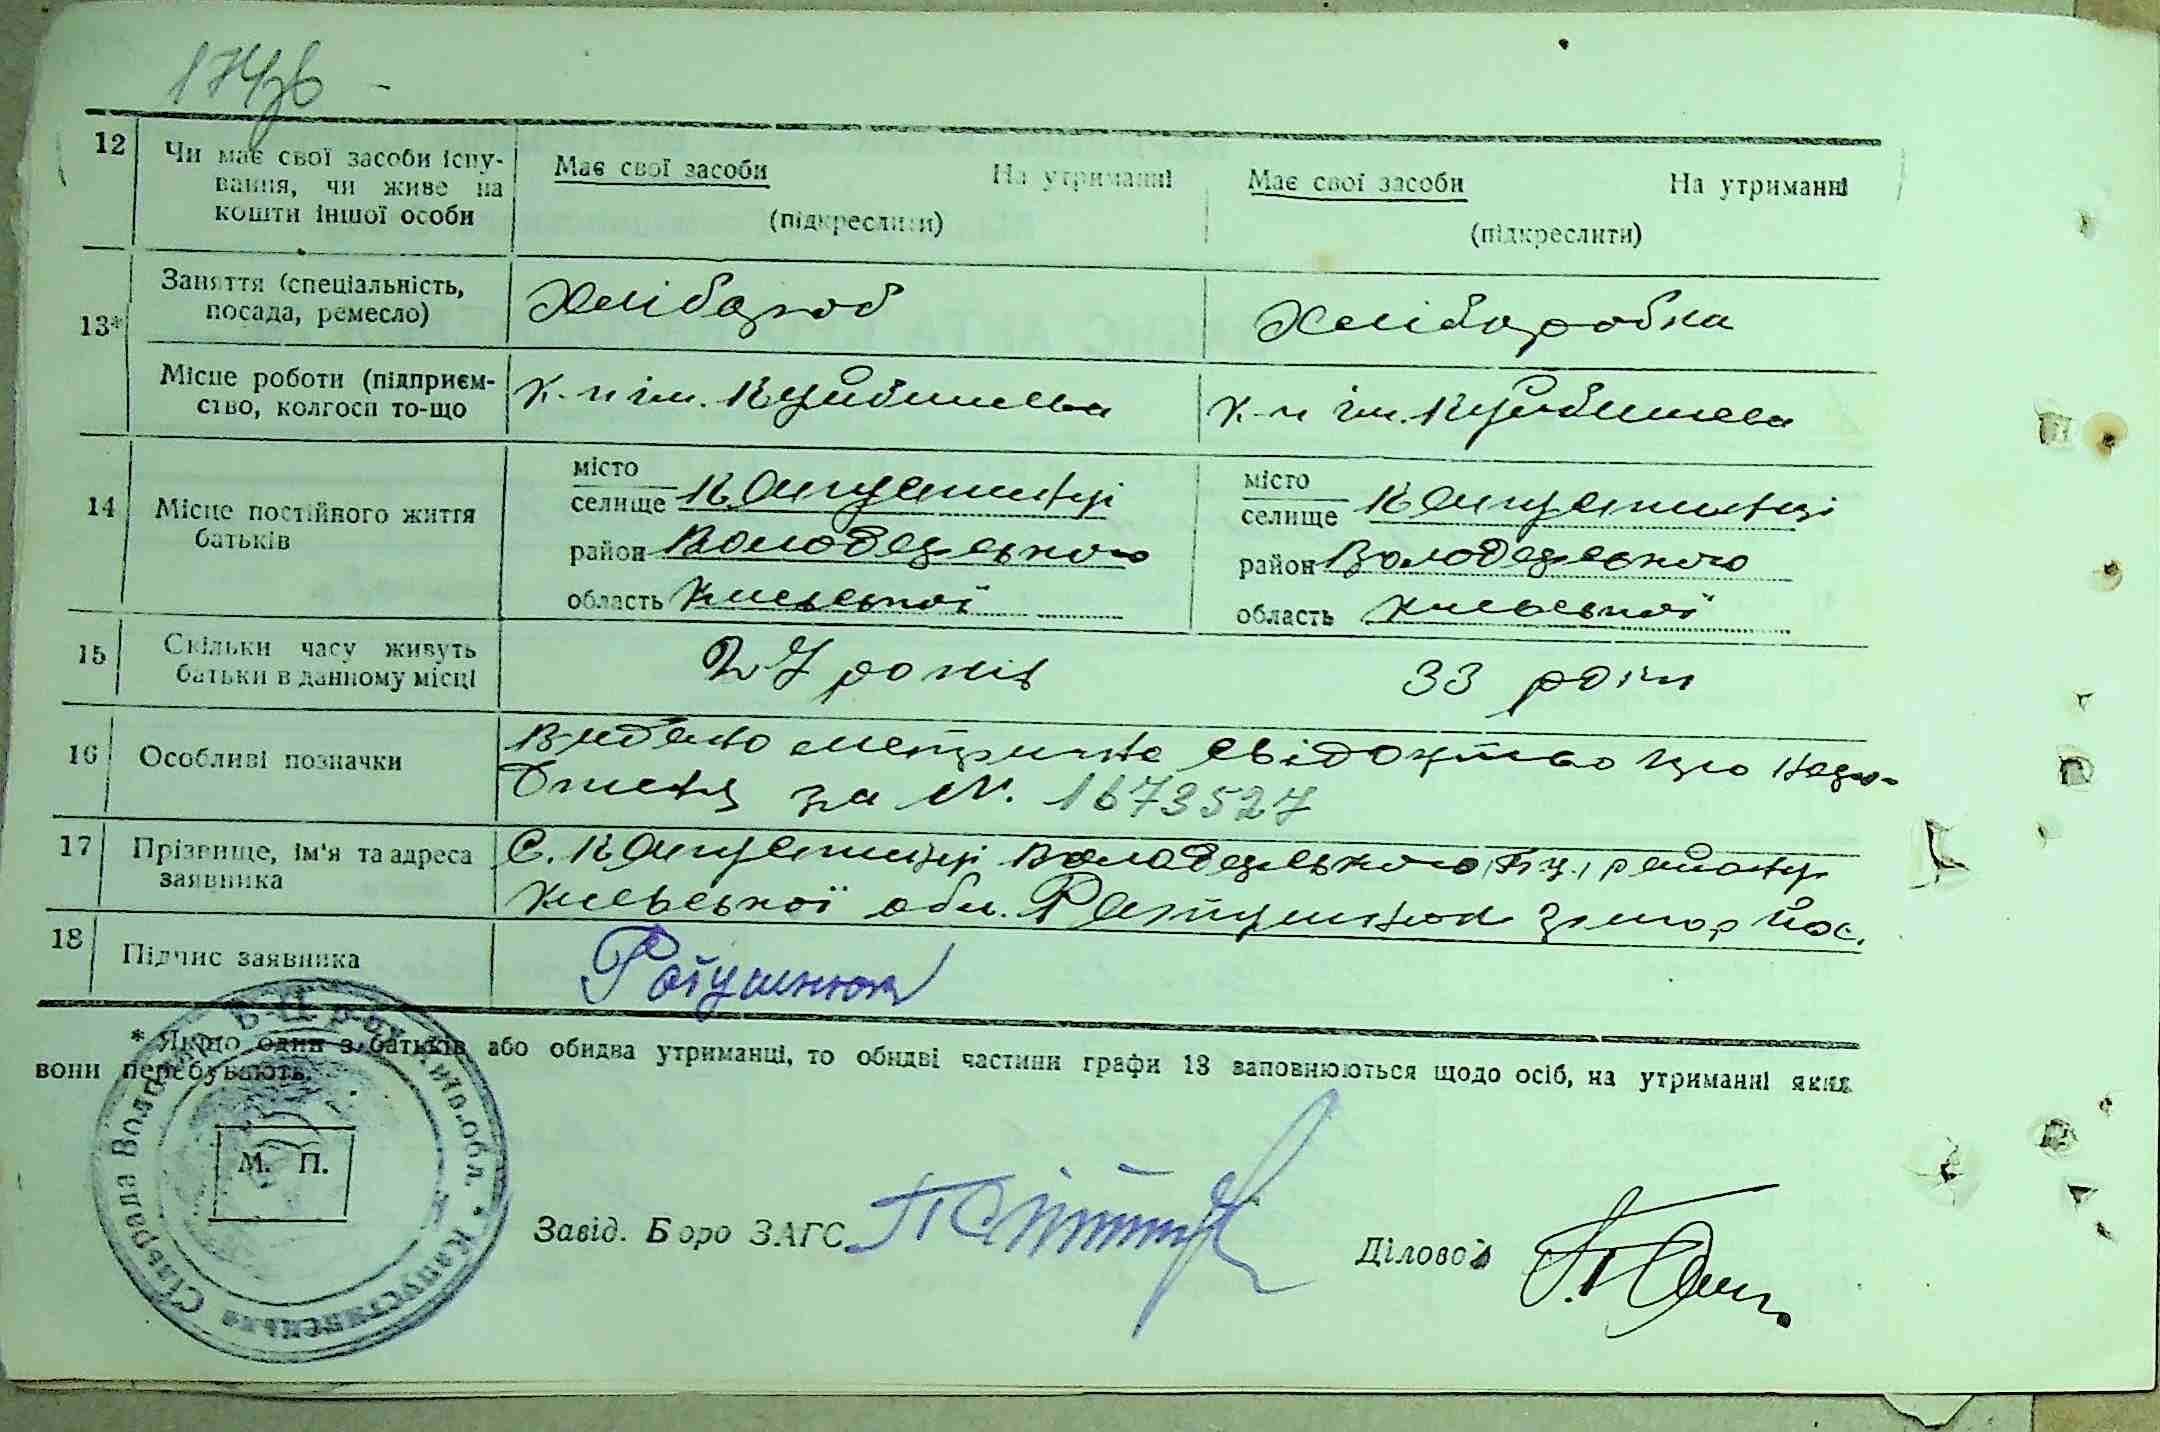 174зв
12 Чи має свої засоби існу-
вання, чи живе на
кошти іншої особи
Має свої засоби На утриманні
(підкреслити)
Має свої засоби На утриманні
(підкреслити)
13*
Заняття (спеціальність,
посада, ремесло)
Хлібороб
Хліборобка
Місце роботи (підприєм-
ство, колгосп то-що
К-п ім. Куйбишева
К-п ім. Куйбишева
14 Місце постійного життя
батьків
місто
селище Капустинці
район Володарського
область Київської
місто
селище Капустинці
район Володарського
область Київської
15 Скільки часу живуть
батьки в данному місці
27 років
33 роки
16 Особливі позначки
Видано метричне свідоцтво про народ-
ження за №. 1673527
17 Прізвище, ім'я та адреса
заявника
С. Капустинці Володарського Б.Ц. району
Київської обл. Ратушнюк
18 Підпис заявника
Ратушнюк
* Якщо один з батьків або обидва утриманці, то обидві частини графи 13 заповнюються щодо осіб, на утриманні яких
вони перебувають.
М. П.
Капустинська Сільрада Волод. р-ну Б-Ц р-ну Київ. обл.
Завід. Бюро ЗАГС
Діловод